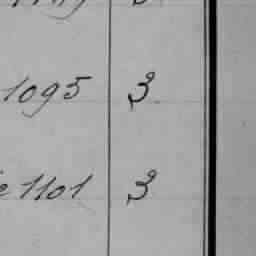 1095 3
1101 3